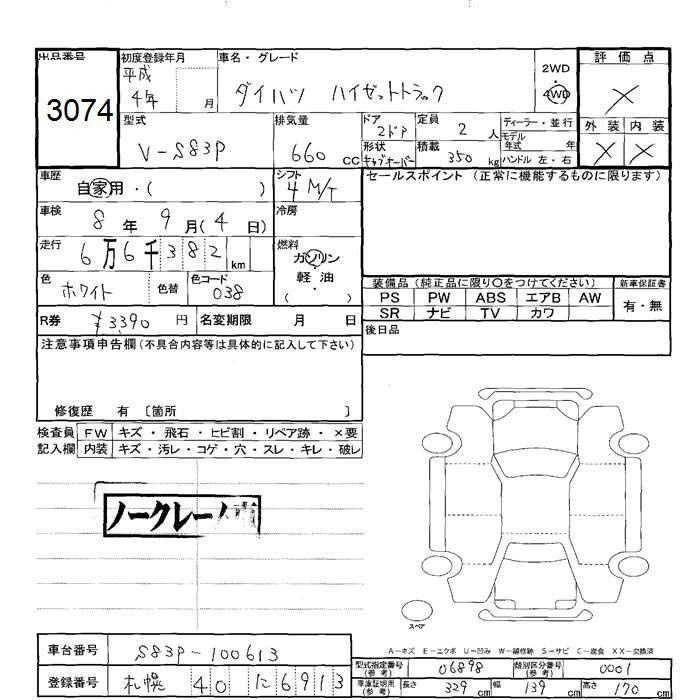 出品番号 初度登録年月 車名・グレード 2WD 評価点
3074 平成 4年 月 ダイハツ ハイゼットトラック 4WD ×
外装 内装
型式 排気量 ドア 2ドア 定員 2人 ディーラー・並行
V-S83P 660 CC 形状 キャブオーバー 積載 350 kg モデル年式 年 × ×
ハンドル 左・右
車歴 シフト セールスポイント (正常に機能するものに限ります)
自家用・( ) 4 M/T
車検 8年 9月(4日) 冷房
走行 6万6千382 km 燃料 ガソリン
軽油
・( )
色 ホワイト 色替 色コード 038
装備品 (純正品に限り〇をつけてください) 新車保証書
PS PW ABS エアB AW 有・無
SR ナビ TV カワ
R券 ¥3390 円 名変期限 月 日
後日品
注意事項申告欄 (不具合内容等は具体的に記入して下さい)
修復歴 有 〔箇所 〕
検査員 FW キズ・飛石・ヒビ割・リペア跡・×要
記入欄 内装 キズ・汚レ・コゲ・穴・スレ・キレ・破レ
ノークレーム
スペア
A-キズ E-エクボ U-凹み W-補修跡 S-サビ C-腐食 XX-交換済
車台番号 S83P-100613
型式指定番号 (参考) 06898 類別区分番号 (参考) 0001
登録番号 札幌 40 に 6913
車庫証明用 (参考) 長さ 329 cm 幅 139 cm 高さ 170 cm